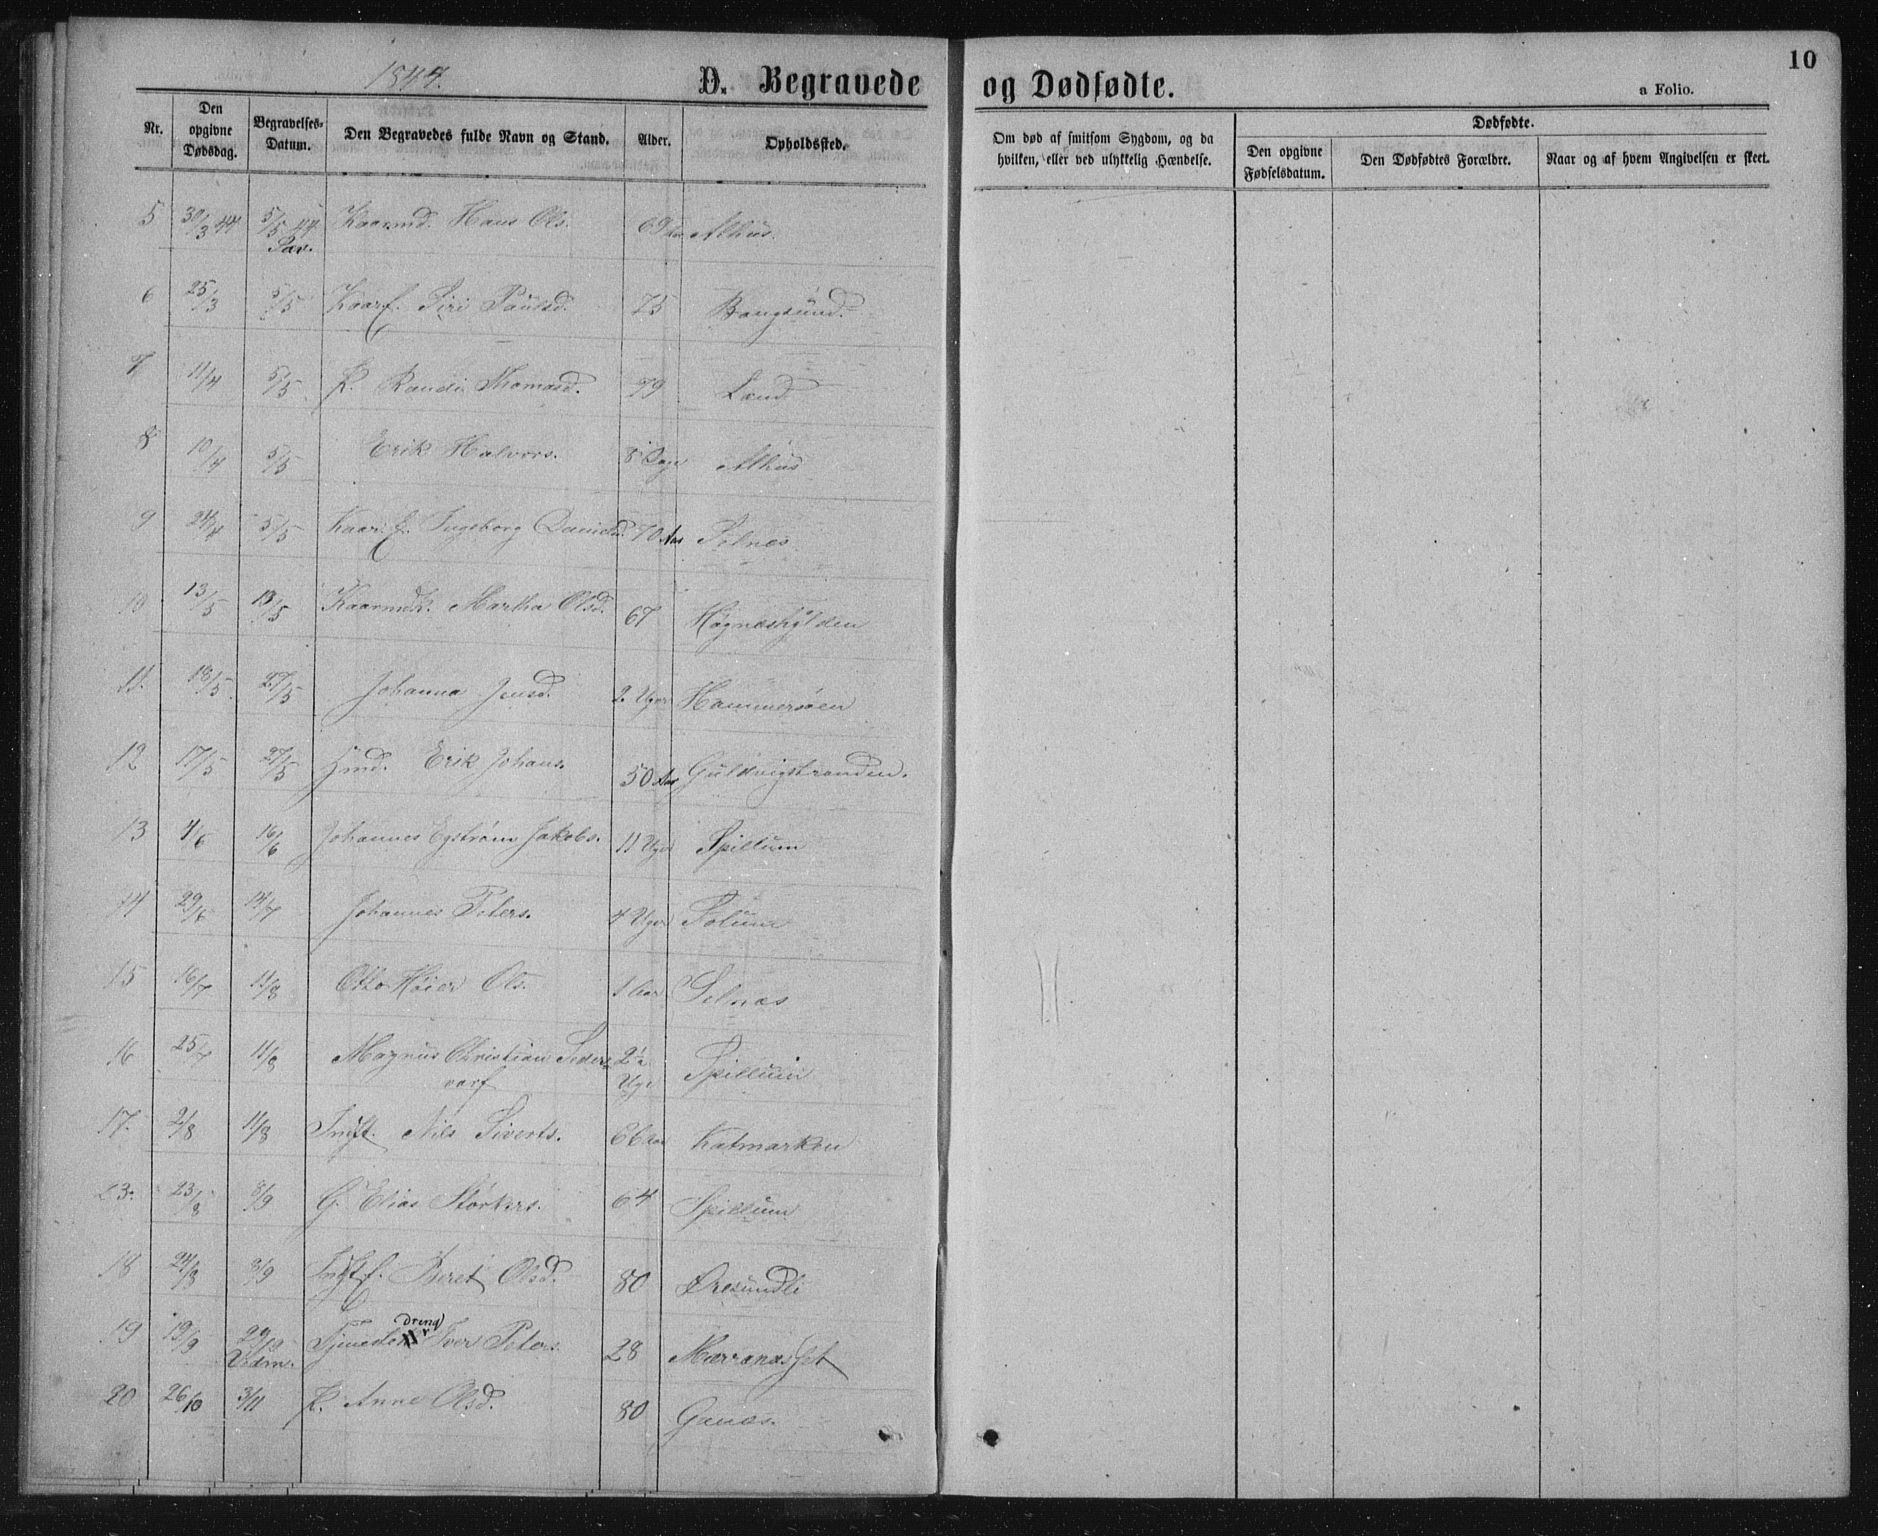 1844.
D. Begravede og Dødfødte.
10
a Folio.
Nr.
Den opgivne Dødsdag.
Begravelses-Datum.
Den Begravedes fulde Navn og Stand.
Alder.
Opholdssted.
Om død af smitsom Sygdom, og da hvilken, eller ved ulykkelig Hændelse.
Dødfødte.
Den opgivne Fødselsdatum.
Den Dødfødtes Forældre.
Naar og af hvem Angivelsen er skeet.
5 30/3 44 5/5 44 Kaarmd. Hans Ols. 69 Aar Alhus.
6 25/3 5/5 Kaarf. Siri Paulsd. 75 Bangsund.
7 11/4 5/5 K. Randi Thomasd. 79 Land
8 10/4 5/5 Erik Halvors. 8 Dage Alhus
9 24/4 5/5 Kaar.f. Ingeborg Danielsd. 70 Aar Selnes
10 13/5 19/5 Martha Olsd. 67
11. 18/5 27/5 Johanna Jensd. 2 Uger Hammersøen
12 17/5 27/5 Hmd. Erik Johans. 50 Aar Guldvigstranden.
13 4/6 16/6 Johannes Egstrøm Jakobs. 11 Uger Spillum
14 29/6 14/7 Johannes Peters. 4 Uger Solum
15 16/7 11/8 Otto Høier Ols. 1 Aar Selnæs
16 25/7 11/8 Magnus Christian 2½ Uge Spillum
17. 2/8 11/8 Indst. Nils Siverts. 66 Aar Katmarken
23. 23/8 8/9 G. Elias Størkers. 64 Spillum
18 24/8 8/9 Indst f. Beret Olsd. 80 Øresundli
19 19/9 29/9 Tjeneste dreng Iver Peters. 28
20 26/10 3/11 K. Anne Olsd. 80 Ganæs.